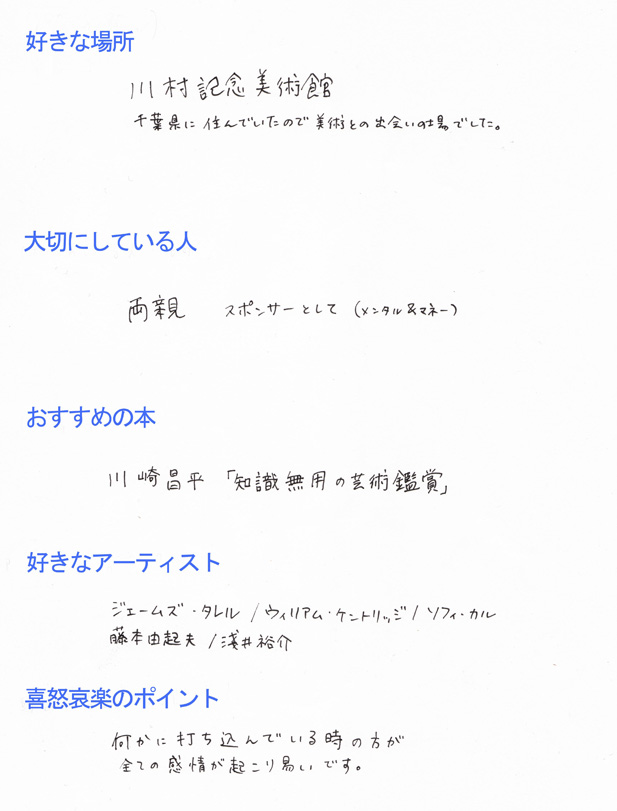 好きな場所
川村記念美術館
千葉県に住んでいたので美術との出会いの場でした。
大切にしている人
両親 スポンサーとして (メンタル&マネー)
おすすめの本
川崎昌平「知識無用の芸術鑑賞」
好きなアーティスト
ジェームズ・タレル / ウィリアム・ケントリッジ / ソフィ・カル
藤本由起夫 / 淺井裕介
喜怒哀楽のポイント
何かに打ち込んでいる時の方が
全ての感情が起こり易いです。